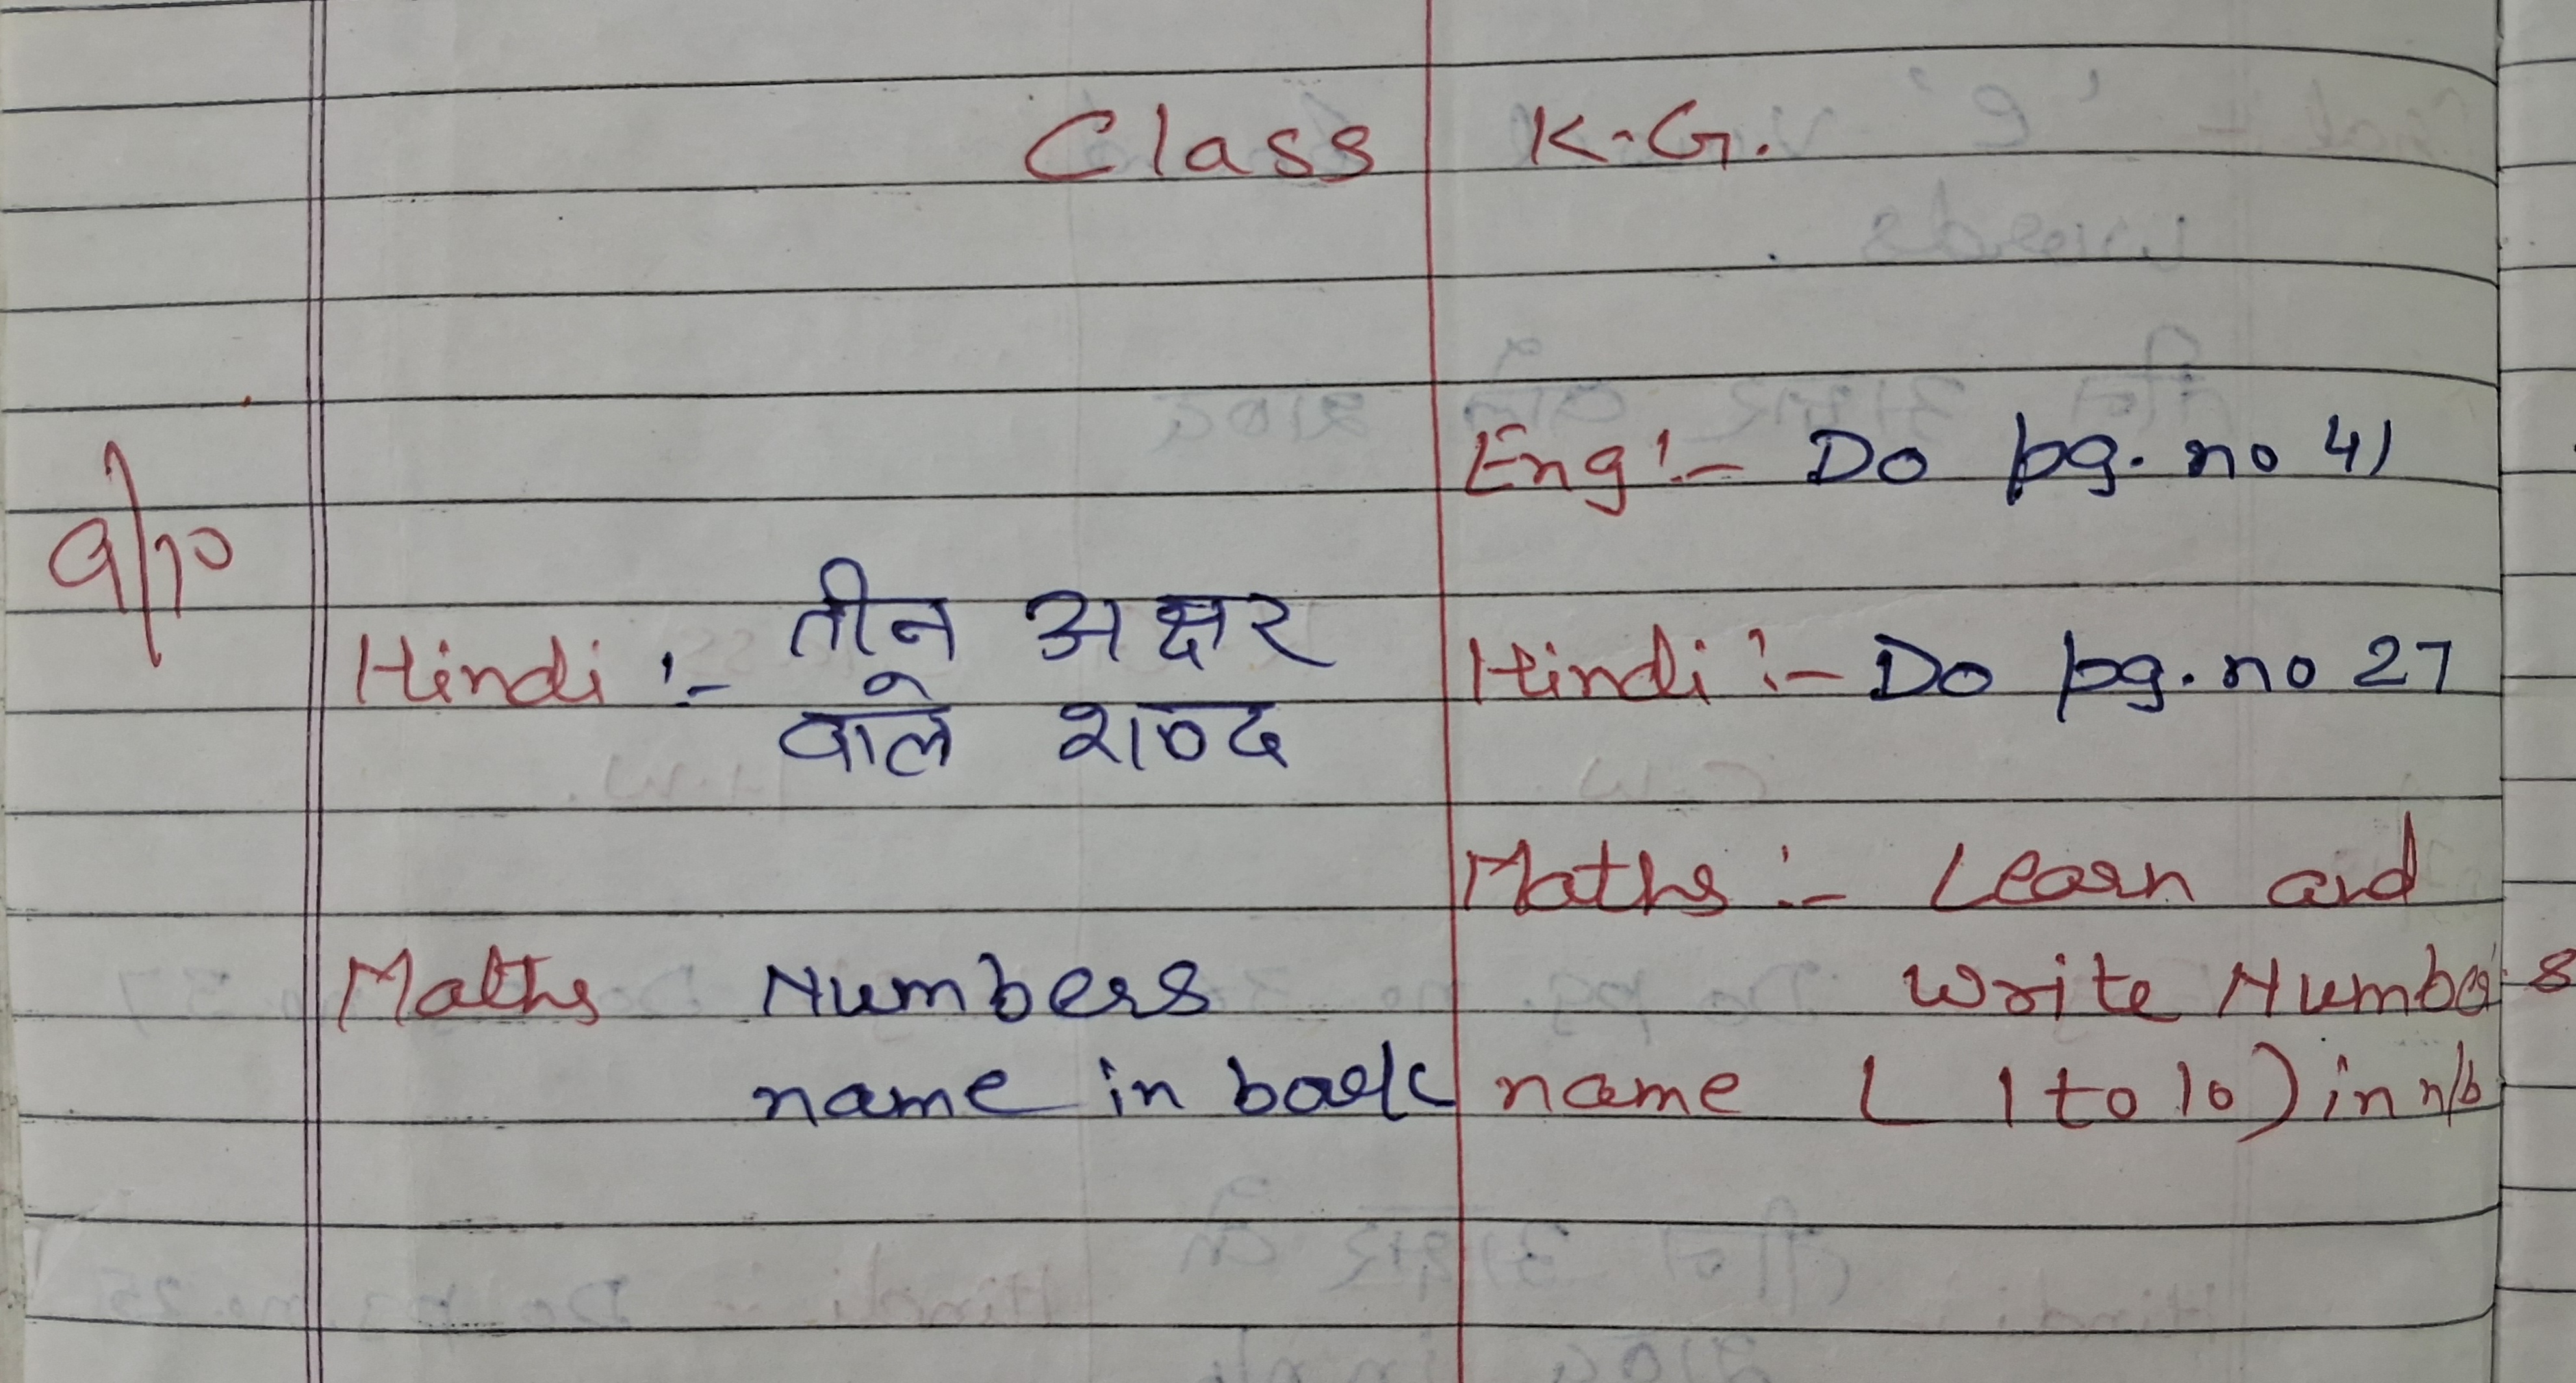 Class K.G.
Eng :- Do pg. no 41
9/10
Hindi :- तीन अक्षर
वाले शब्द
Hindi :- Do pg. no 27
Maths :- Learn and
Maths Numbers
name in book
write Numbers
name ( 1 to 10 ) in n/b